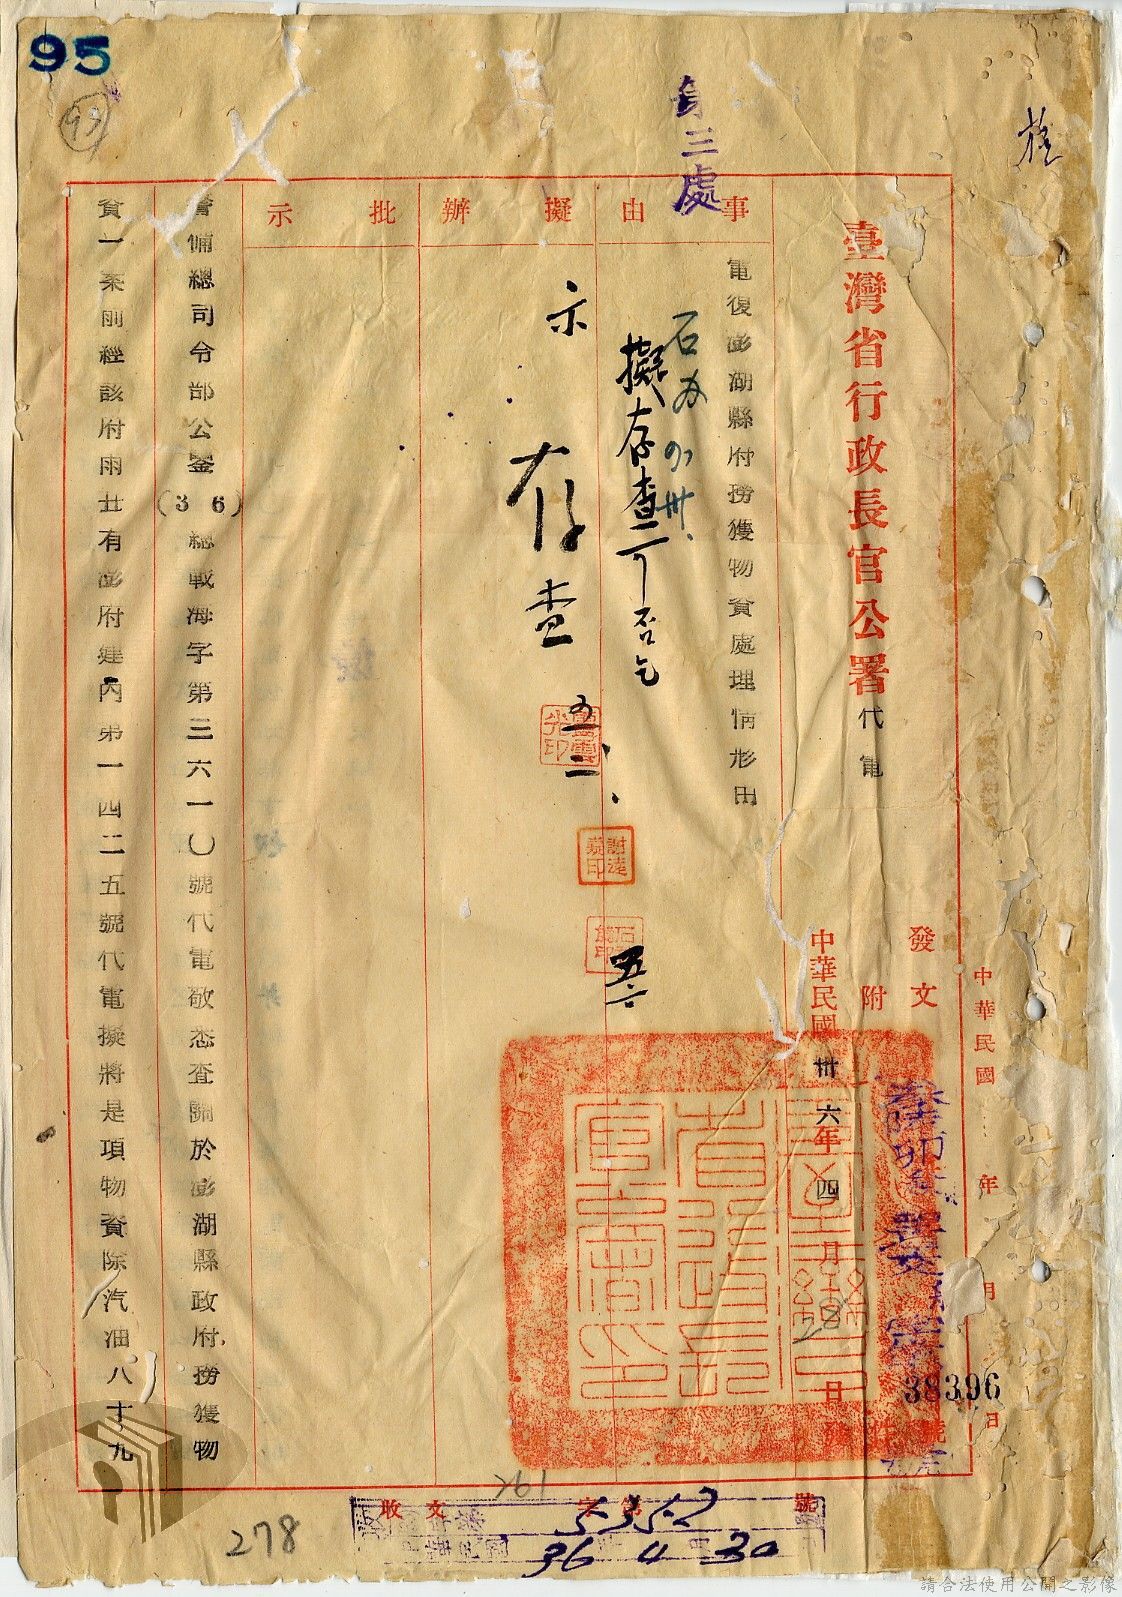 95
93
第三處
臺灣省行政長官公署代電
事由
電復澎湖縣府撈獲物資處理情形由
擬辦
批示
擬存查可否乞
示
存查
五、二、
五、二
謝遠
印
發文
附
中華民國卅六年四月28日
中華民國 年 月 日
38396
號
警備總司令部公鑒(36)總戰海字第三六一〇號代電敬悉查關於澎湖縣政府撈獲物
資一案前經該府兩廿有澎府建丙第一四二五號代電擬將是項物資除汽油八十九
收文 字第 號
5352
36 4 30
261
278
請合法使用公開之影像